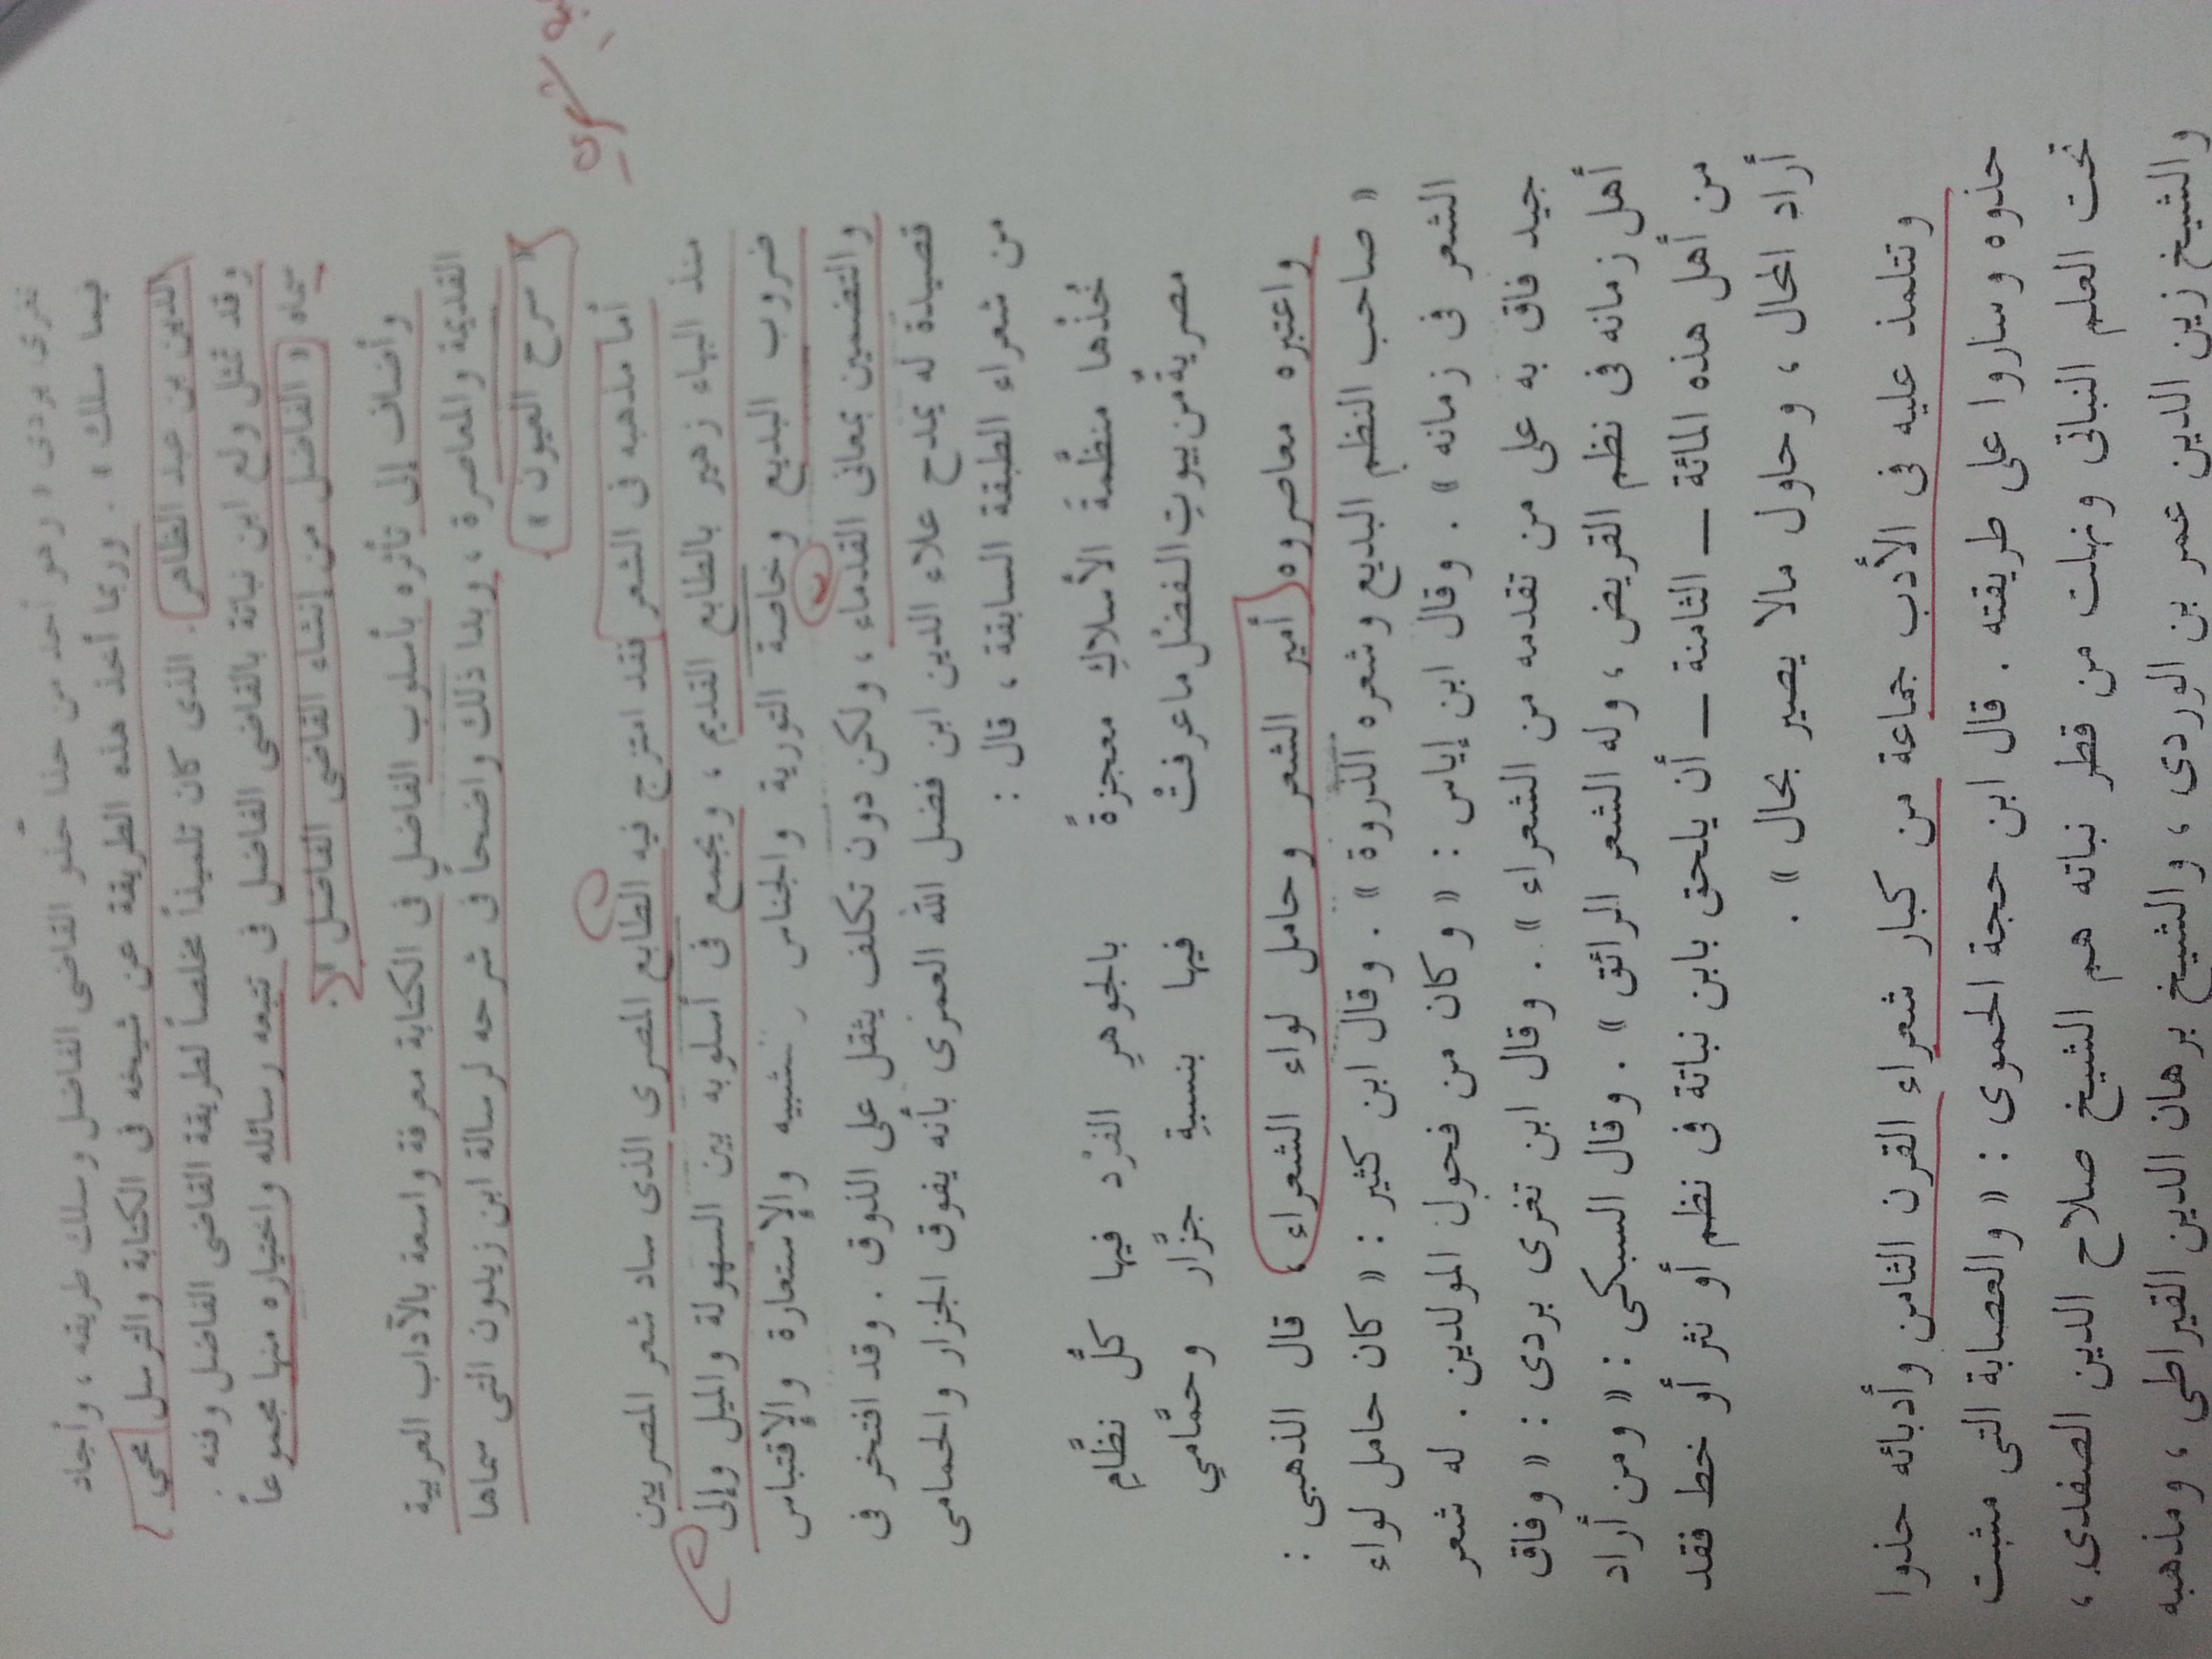 تغرى بردى « وهو أحد من حذا حذو القاضى الفاضل وسلك طريقه ، وأجاد
فيما سلك » . وربما أخذ هذه الطريقة عن شيخه فى الكتابة والترسل محيي
الدين بن عبد الظاهر . الذى كان تلميذاً مخلصاً لطريقة القاضى الفاضل وفنه
وقد تمثل ولع ابن نباتة بالقاضى الفاضل فى تتبعه رسائله واختياره منها مجموعاً
سماه « الفاضل من إنشاء القاضى الفاضل » .
وأضاف إلى تأثره بأسلوب الفاضل فى الكتابة معرفة واسعة بالآداب العربية
القديمة والمعاصرة ، وبدا ذلك واضحاً فى شرحه لرسالة ابن زيدون التى سماها
« سرح العيون » .
أما مذهبه فى الشعر فقد امتزج فيه الطابع المصرى الذى ساد شعر المصريين
منذ البهاء زهير بالطابع القديم ، ويجمع فى أسلوبه بين السهولة والميل وإلى
ضروب البديع وخاصة التورية والجناس والتشبيه والإستعارة والإقتباس
والتضمين بمعانى القدماء ، ولكن دون تكلف يثقل على الذوق . وقد افتخر فى
قصيدة له يمدح علاء الدين ابن فضل الله العمرى بأنه يفوق الجزار والحمامى
من شعراء الطبقة السابقة ، قال :
خُذْها منظَّمة الأسلاكِ معجزةً بالجوهرِ الفرْد فيها كلُّ نظَّامِ
مصريةٌ من بيوتِ الفضْل ما عرفتْ فيها بنسبةِ جزَّار وحمَّامي
واعتبره معاصروه أمير الشعر وحامل لواء الشعراء ، قال الذهبى :
« صاحب النظم البديع وشعره الذروة » . وقال ابن كثير : « كان حامل لواء
الشعر فى زمانه » . وقال ابن إياس : « وكان من فحول المولدين . له شعر
جيد فاق به على من تقدمه من الشعراء » . وقال ابن تغرى بردى : « وفاق
أهل زمانه فى نظم القريض ، وله الشعر الرائق » . وقال السبكى : « ومن أراد
من أهل هذه المائة – الثامنة – أن يلحق بابن نباتة فى نظم أو نثر أو خط فقد
أراد المحال ، وحاول مالا يصير بحال » .
وتتلمذ عليه فى الأدب جماعة من كبار شعراء القرن الثامن وأدبائه حذوا
حذوه وساروا على طريقته . قال ابن حجة الحموى : « والعصابة التى مشت
تحت العلم النباتى ونهلت من قطر نباته هم الشيخ صلاح الدين الصفدى ،
والشيخ زين الدين عمر بن الوردى ، والشيخ برهان الدين القيراطى ، ومذهبه